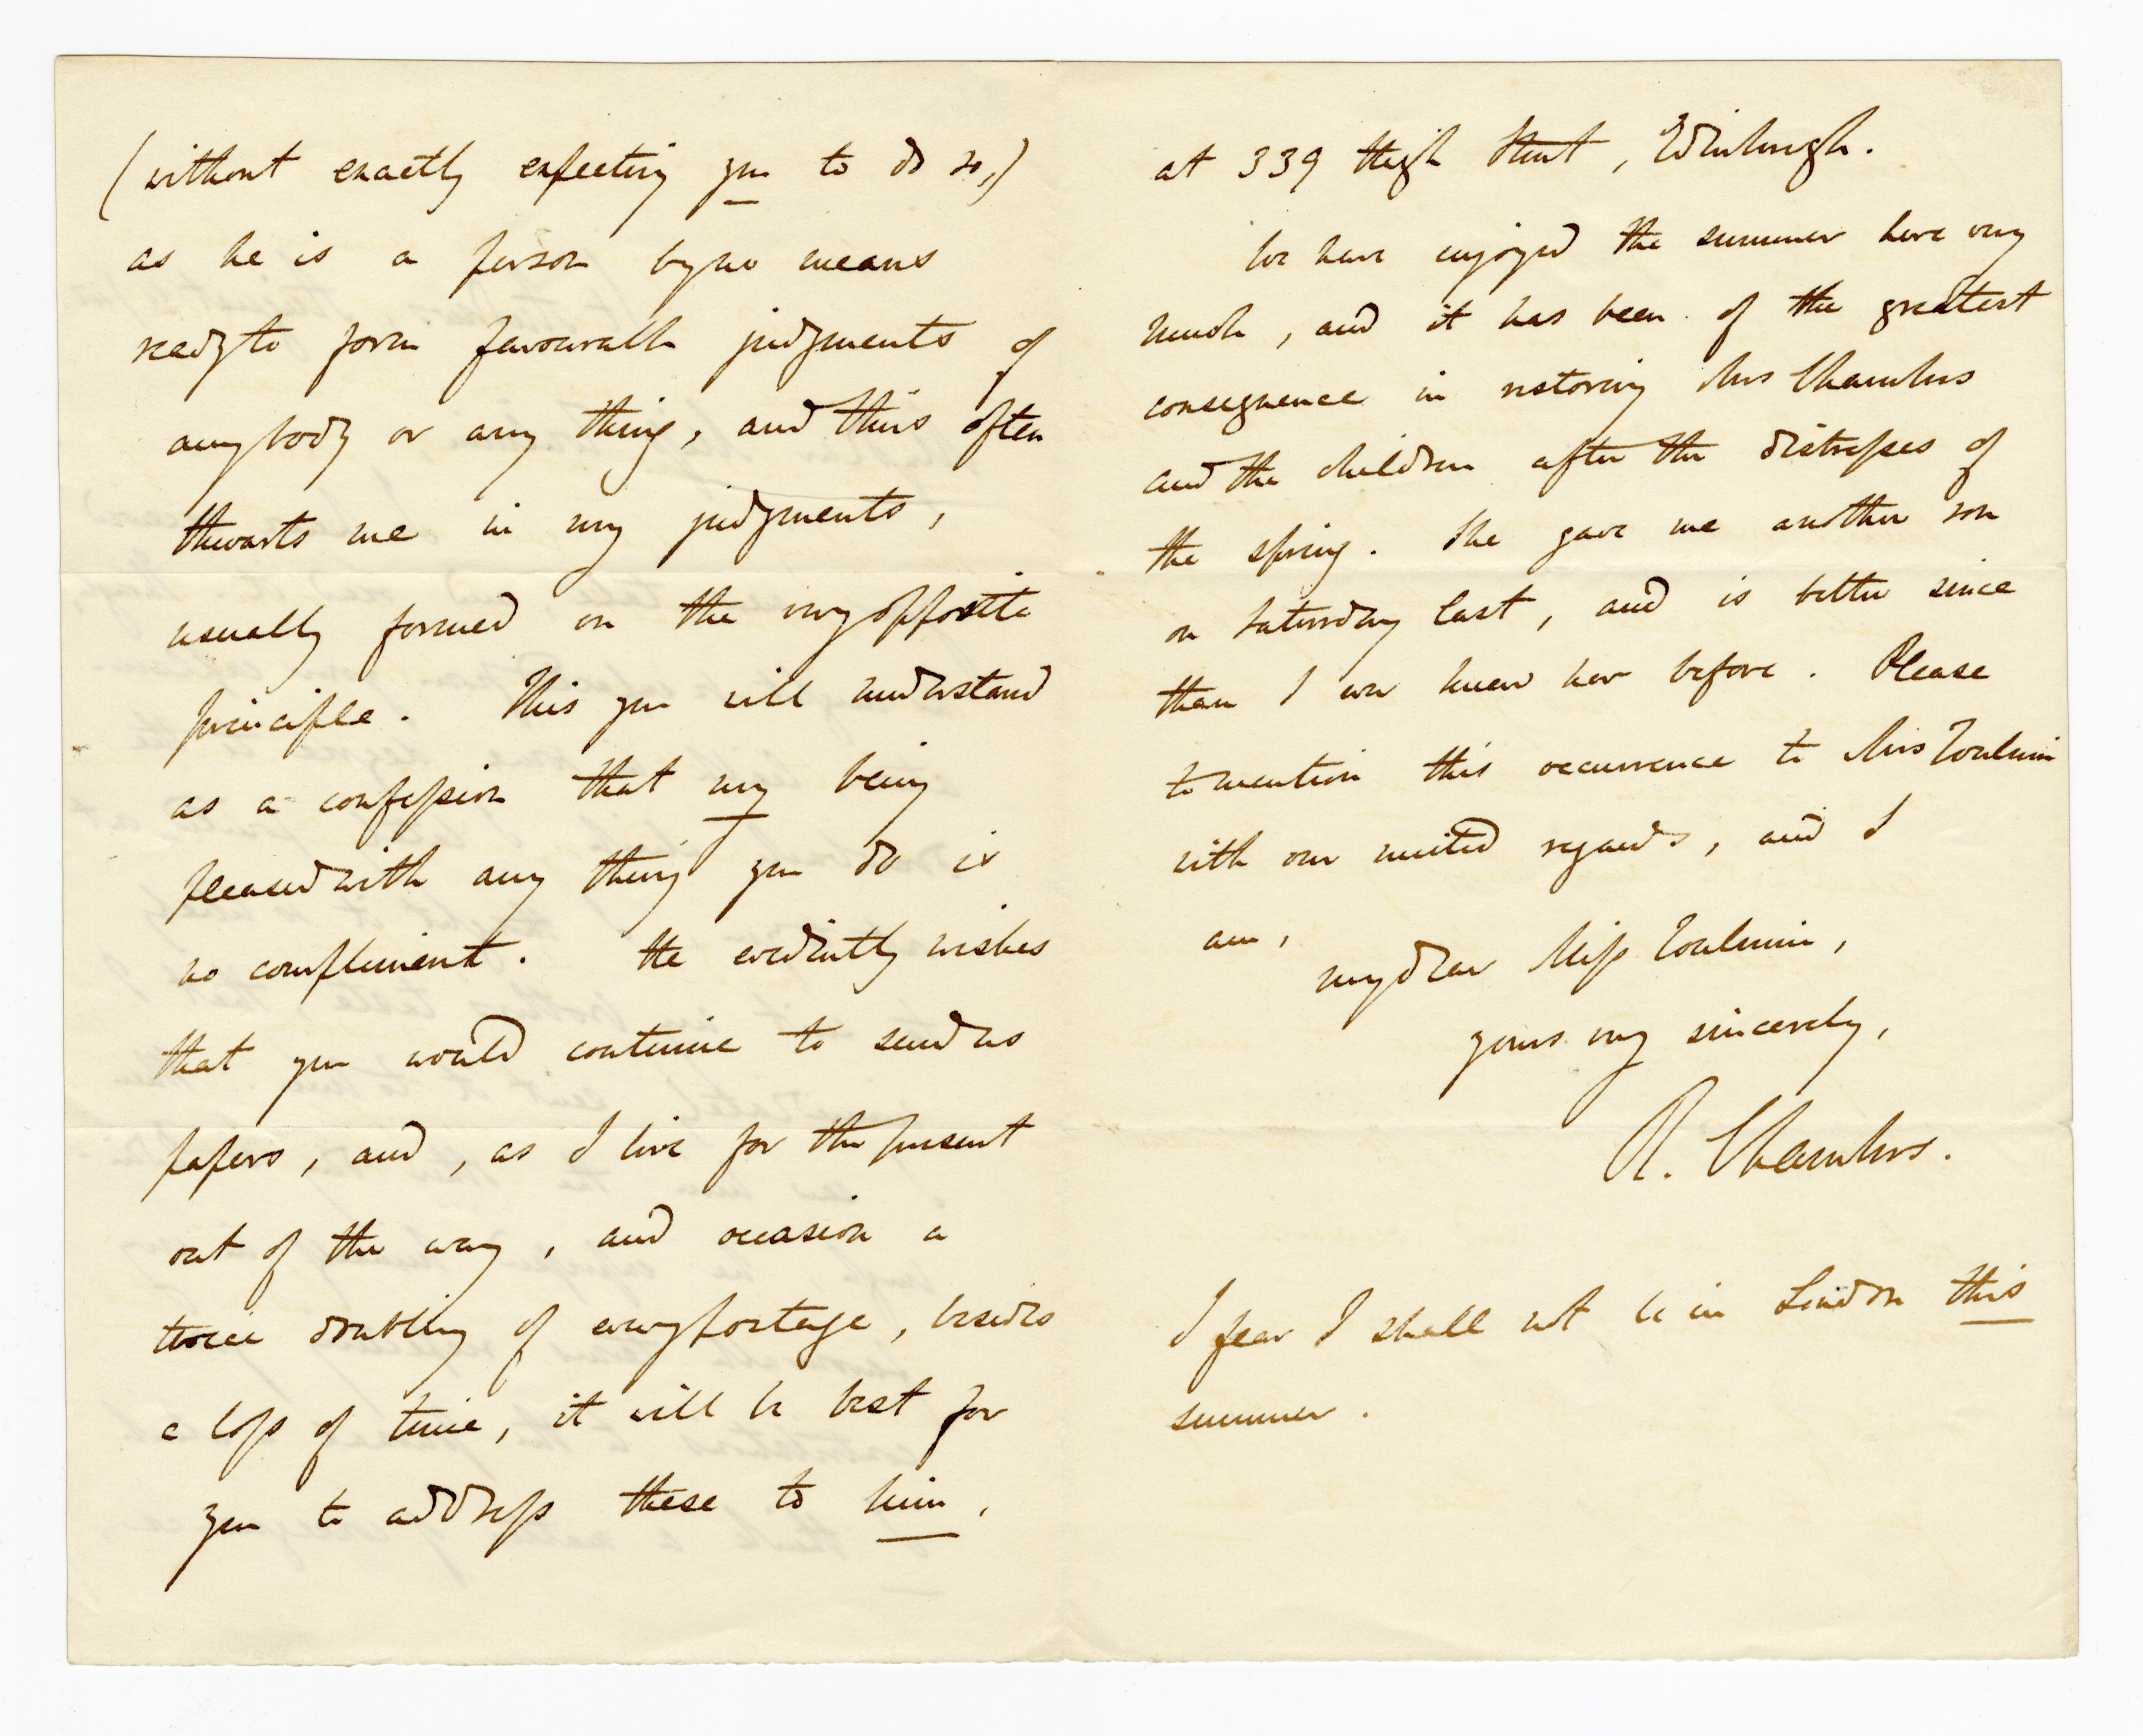 (without exactly expecting you to do so,)
as he is a person by no means
ready to form favourable judgments of
any body or any thing, and thus often
thwarts me in my judgments,
usually formed on the very opposite
principle. This you will understand
as a confession that my being
pleased with any thing you do is
no compliment. He evidently wishes
that you would continue to send us
papers, and, as I live for the present
out of the way, and occasion a
doubling of every postage, besides
a loss of time, it will be best for
you to address these to him,
at 339 High Street, Edinburgh.
We have enjoyed the summer here very
much, and it has been of the greatest
consequence in restoring Mrs Chambers
and the children after the distresses of
the spring. She gave me another son
on Saturday last, and is better since
than I ever knew her before. Please
to mention this occurrence to Mrs Toulmin
with our united regards, and I
am,
my dear Miss Toulmin,
yours very sincerely,
R. Chambers.
I fear I shall not be in London this
summer.